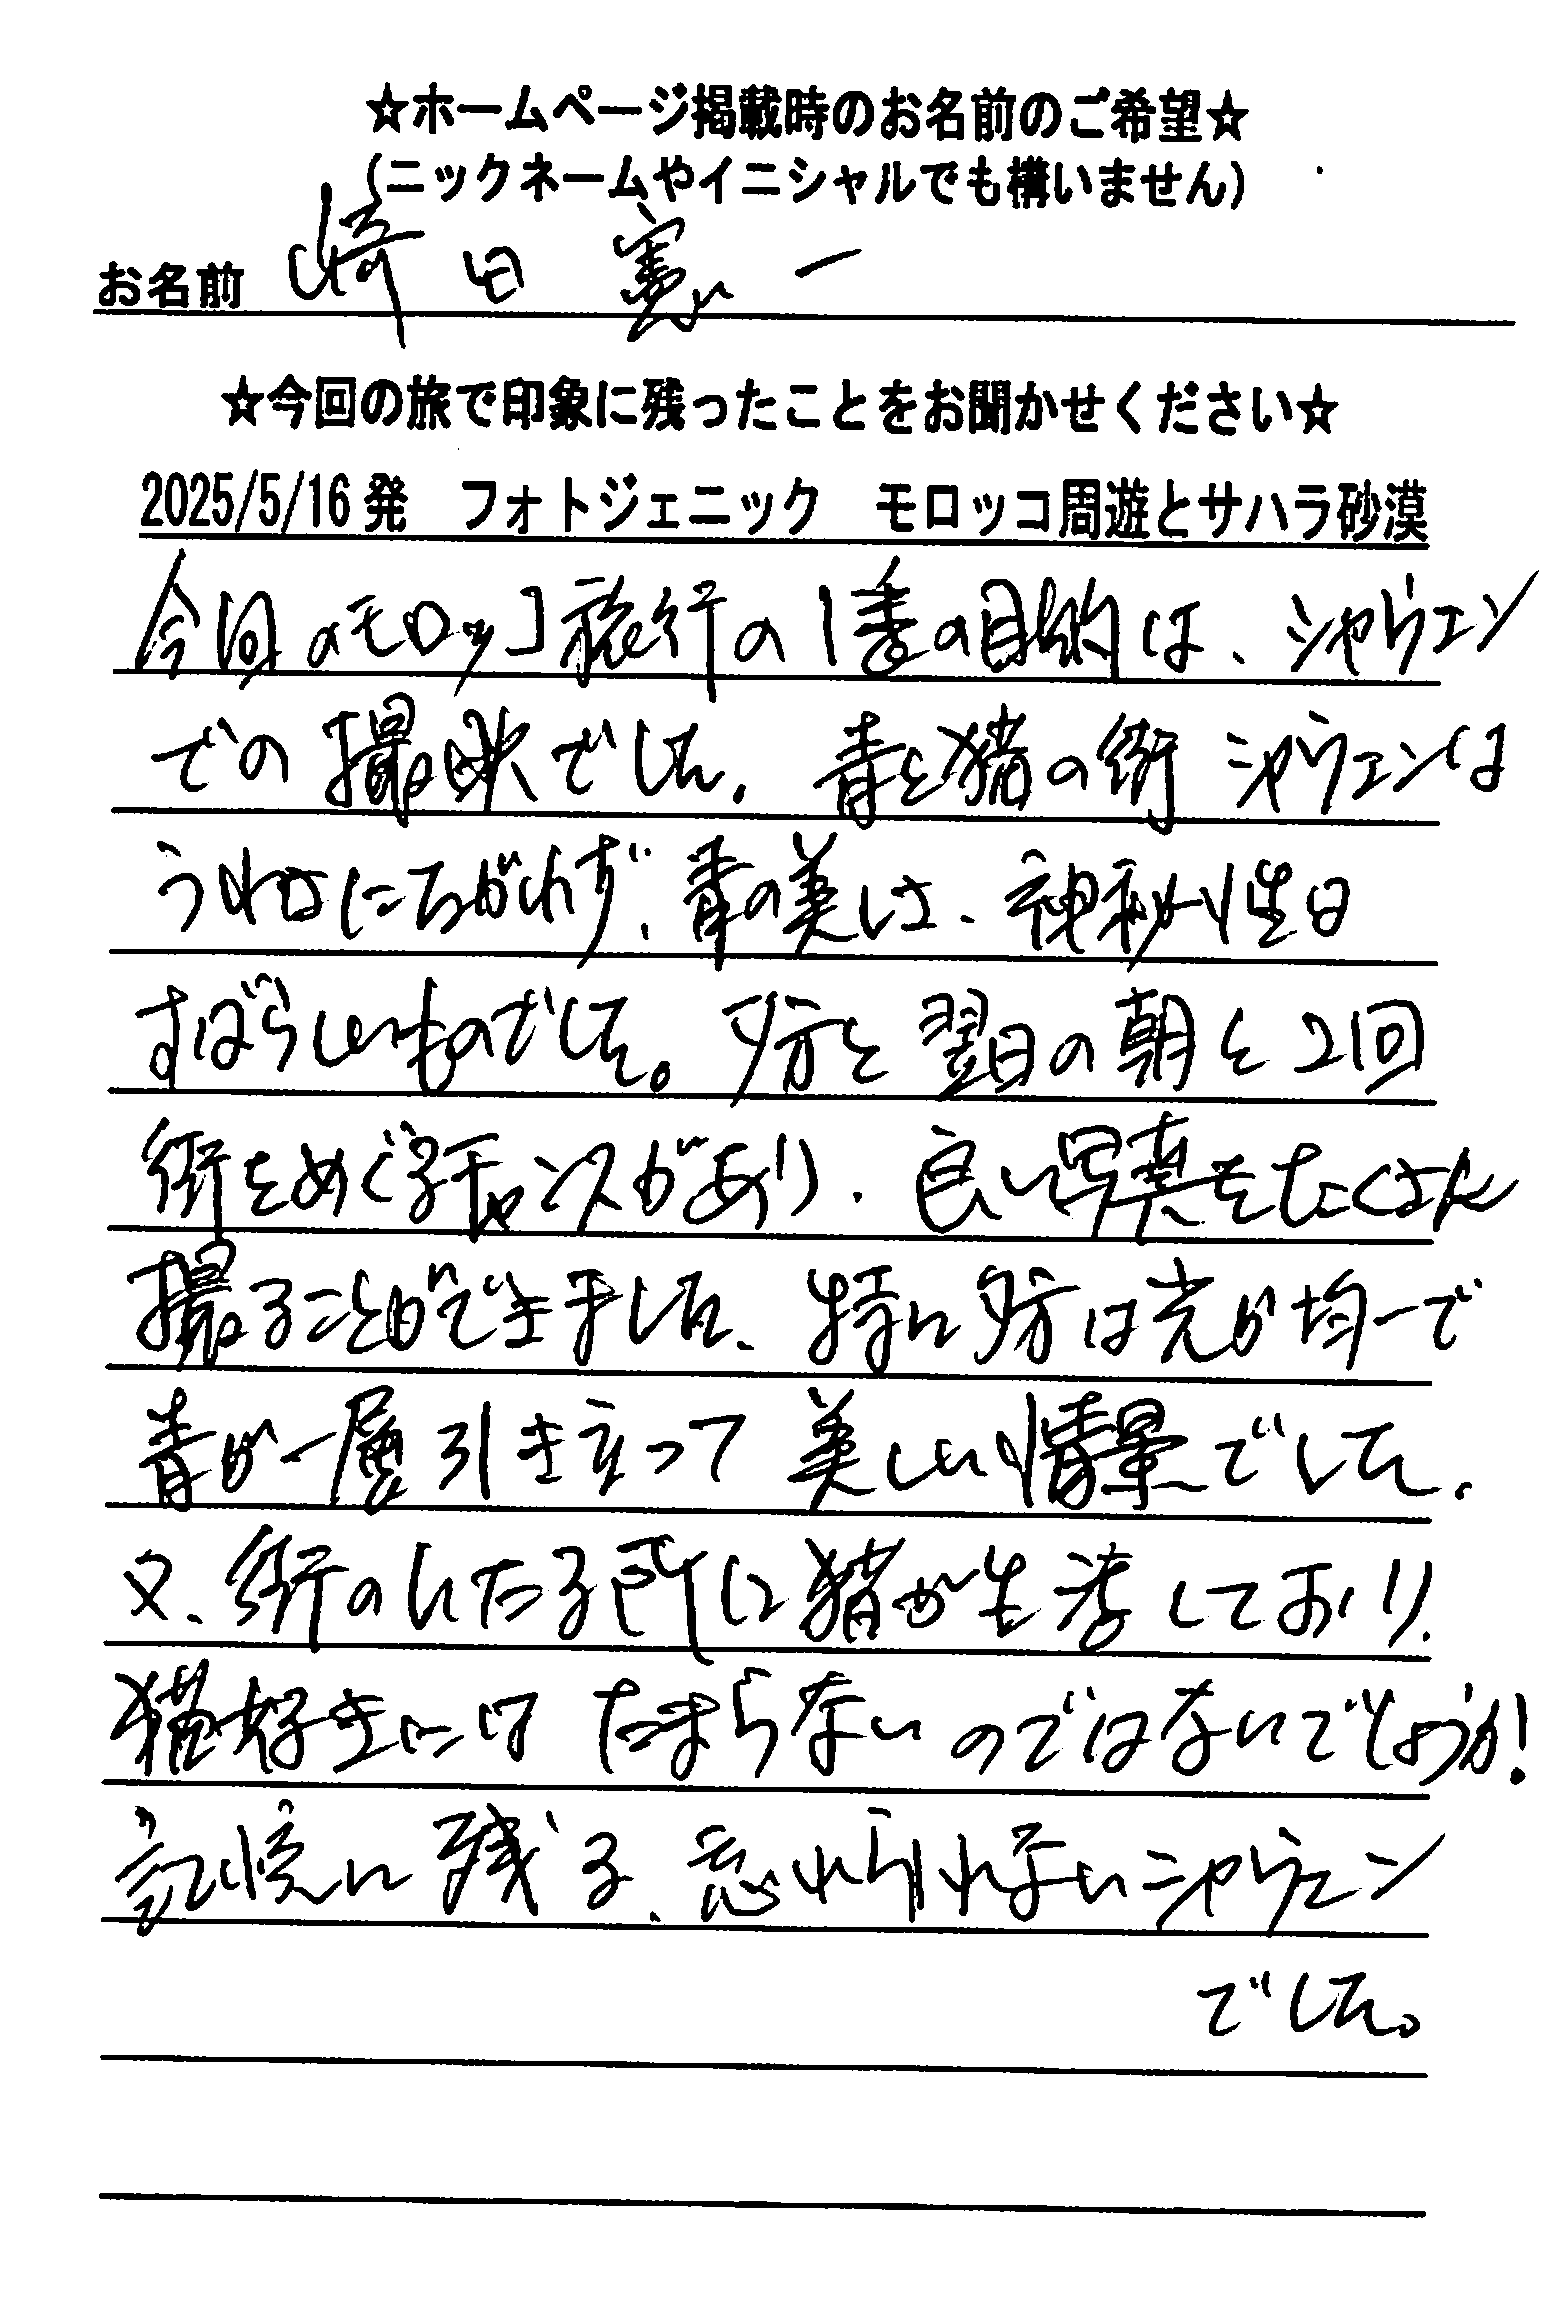 ☆ホームページ掲載時のお名前のご希望☆
(ニックネームやイニシャルでも構いません)
お名前 崎田 憲一
☆今回の旅で印象に残ったことをお聞かせください☆
2025/5/16発 フォトジェニック モロッコ周遊とサハラ砂漠
今回のモロッコ旅行の1番の目的は、シャウエン
での撮映でした。青と猫の街 シャウエンは
うわさにたがわず、青の美しさ、神秘性は
すばらしいものでした。夕方と翌日の朝と2回
街をめぐるチャンスがあり、良い写真をたくさん
撮ることができました、特に夕方は光が均一で
青が一層引き立って 美しい情景でした。
又、街のいたる所に猫が生活しており、
猫好きには たまらないのではないでしょうか!
記憶に残る、忘れられないシャウェン
でした。